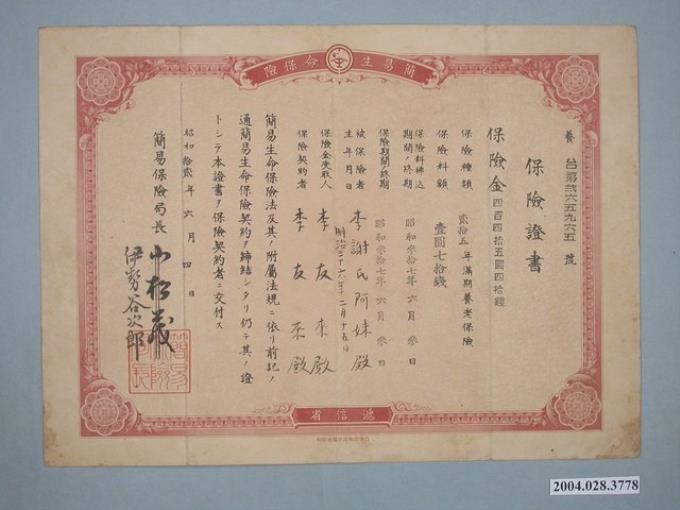 簡易生命保險
養 台第弐六五九六五 號
保險證書
保險金 四百四拾五圓四拾錢
保險種類 貳拾五年滿期養老保險
保險料額 壹圓七拾錢
保險料拂込期間ノ終期 昭和參拾七年六月參日
保險期間ノ終期 昭和參拾七年六月參日
被保險者 李謝氏阿妹殿
生年月日 明治二十六年二月十五日
保險金受取人 李友來殿
保險契約者 李友來殿
簡易生命保險法及其ノ附屬法規ニ依リ前記ノ
通簡易生命保險契約ヲ締結シタリ仍テ其ノ證
トシテ本證書ヲ保險契約者ニ交付ス
昭和拾貳年六月四日
簡易保險局長 小松茂
伊勢谷次郎
遞信省
2004.028.3778